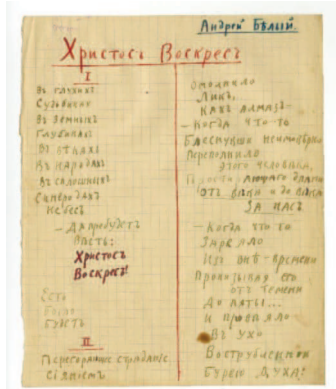 Андрей Бѣлый.
Христосъ Воскресъ
I
Въ глухихъ
Судьбинахъ
Въ земныхъ
Глубинахъ
Въ вѣкахъ
Въ народахъ
Въ сплошныхъ
Синеродахъ
Небесъ
— Да пребудетъ
Вѣсть:
Христосъ
Воскресъ!
Есть
Было
Будетъ
II
Перегорающее страданіе
Сіяніемъ
Омолнило
Ликъ,
Какъ алмазъ —
— Когда что-то
Блеснувши неимовѣрно
Переполнило
этого человѣка,
отъ вѣка и до вѣка
За насъ
— Когда что-то
Зарѣяло
Изъ внѣ-времени
Пронизывая его
отъ темени
До пяты...
И провѣяло
Въ ухо
Вострубленной
Бурею Духа: